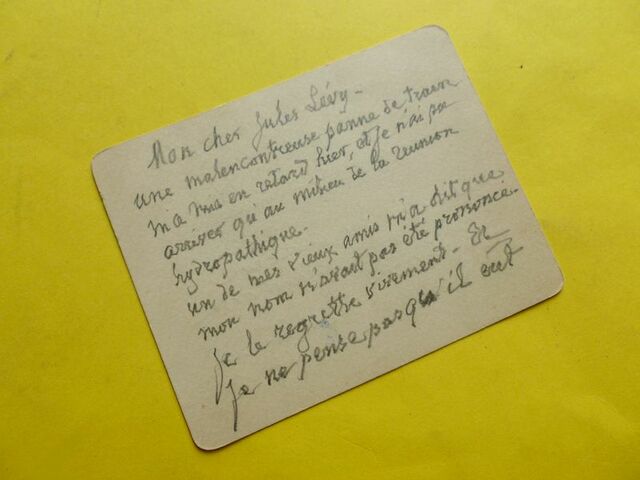 Mon cher Jules Lévy -
une malencontreuse panne de train
m'a mis en retard hier, et je n'ai pu
arriver qu'au milieu de la reunion
hydropathique.
un de mes vieux amis m'a dit que
mon nom n'avait pas été prononcé.
Je le regrette vivement - Et
je ne pense pas qu'il eut